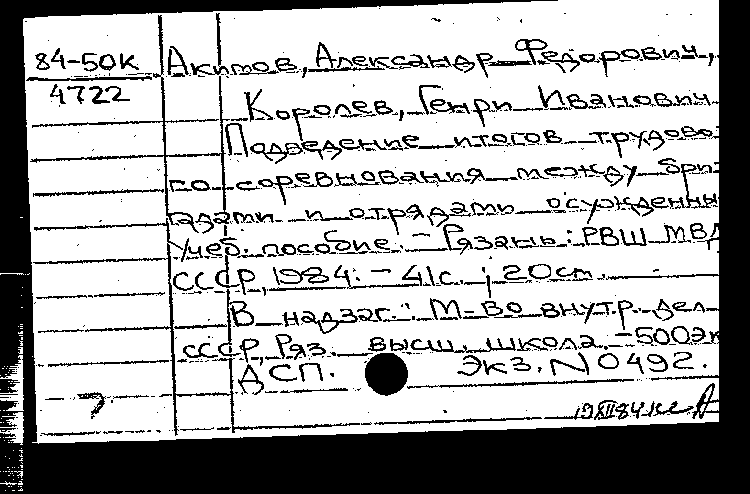 84-50к Акимов, Александр Федорович,
4722 Королев, Генри Иванович
Подведение итогов трудово-
го соревнования между бри-
гадами и отрядами осужденны
Учеб. пособие. - Рязань: РВШ МВД
СССР, 1984. - 41с.; 20см.
В надзаг.: М-во внутр. дел
СССР, Ряз. высш. школа. - 500эк
ДСП. Экз. N 0492.
7